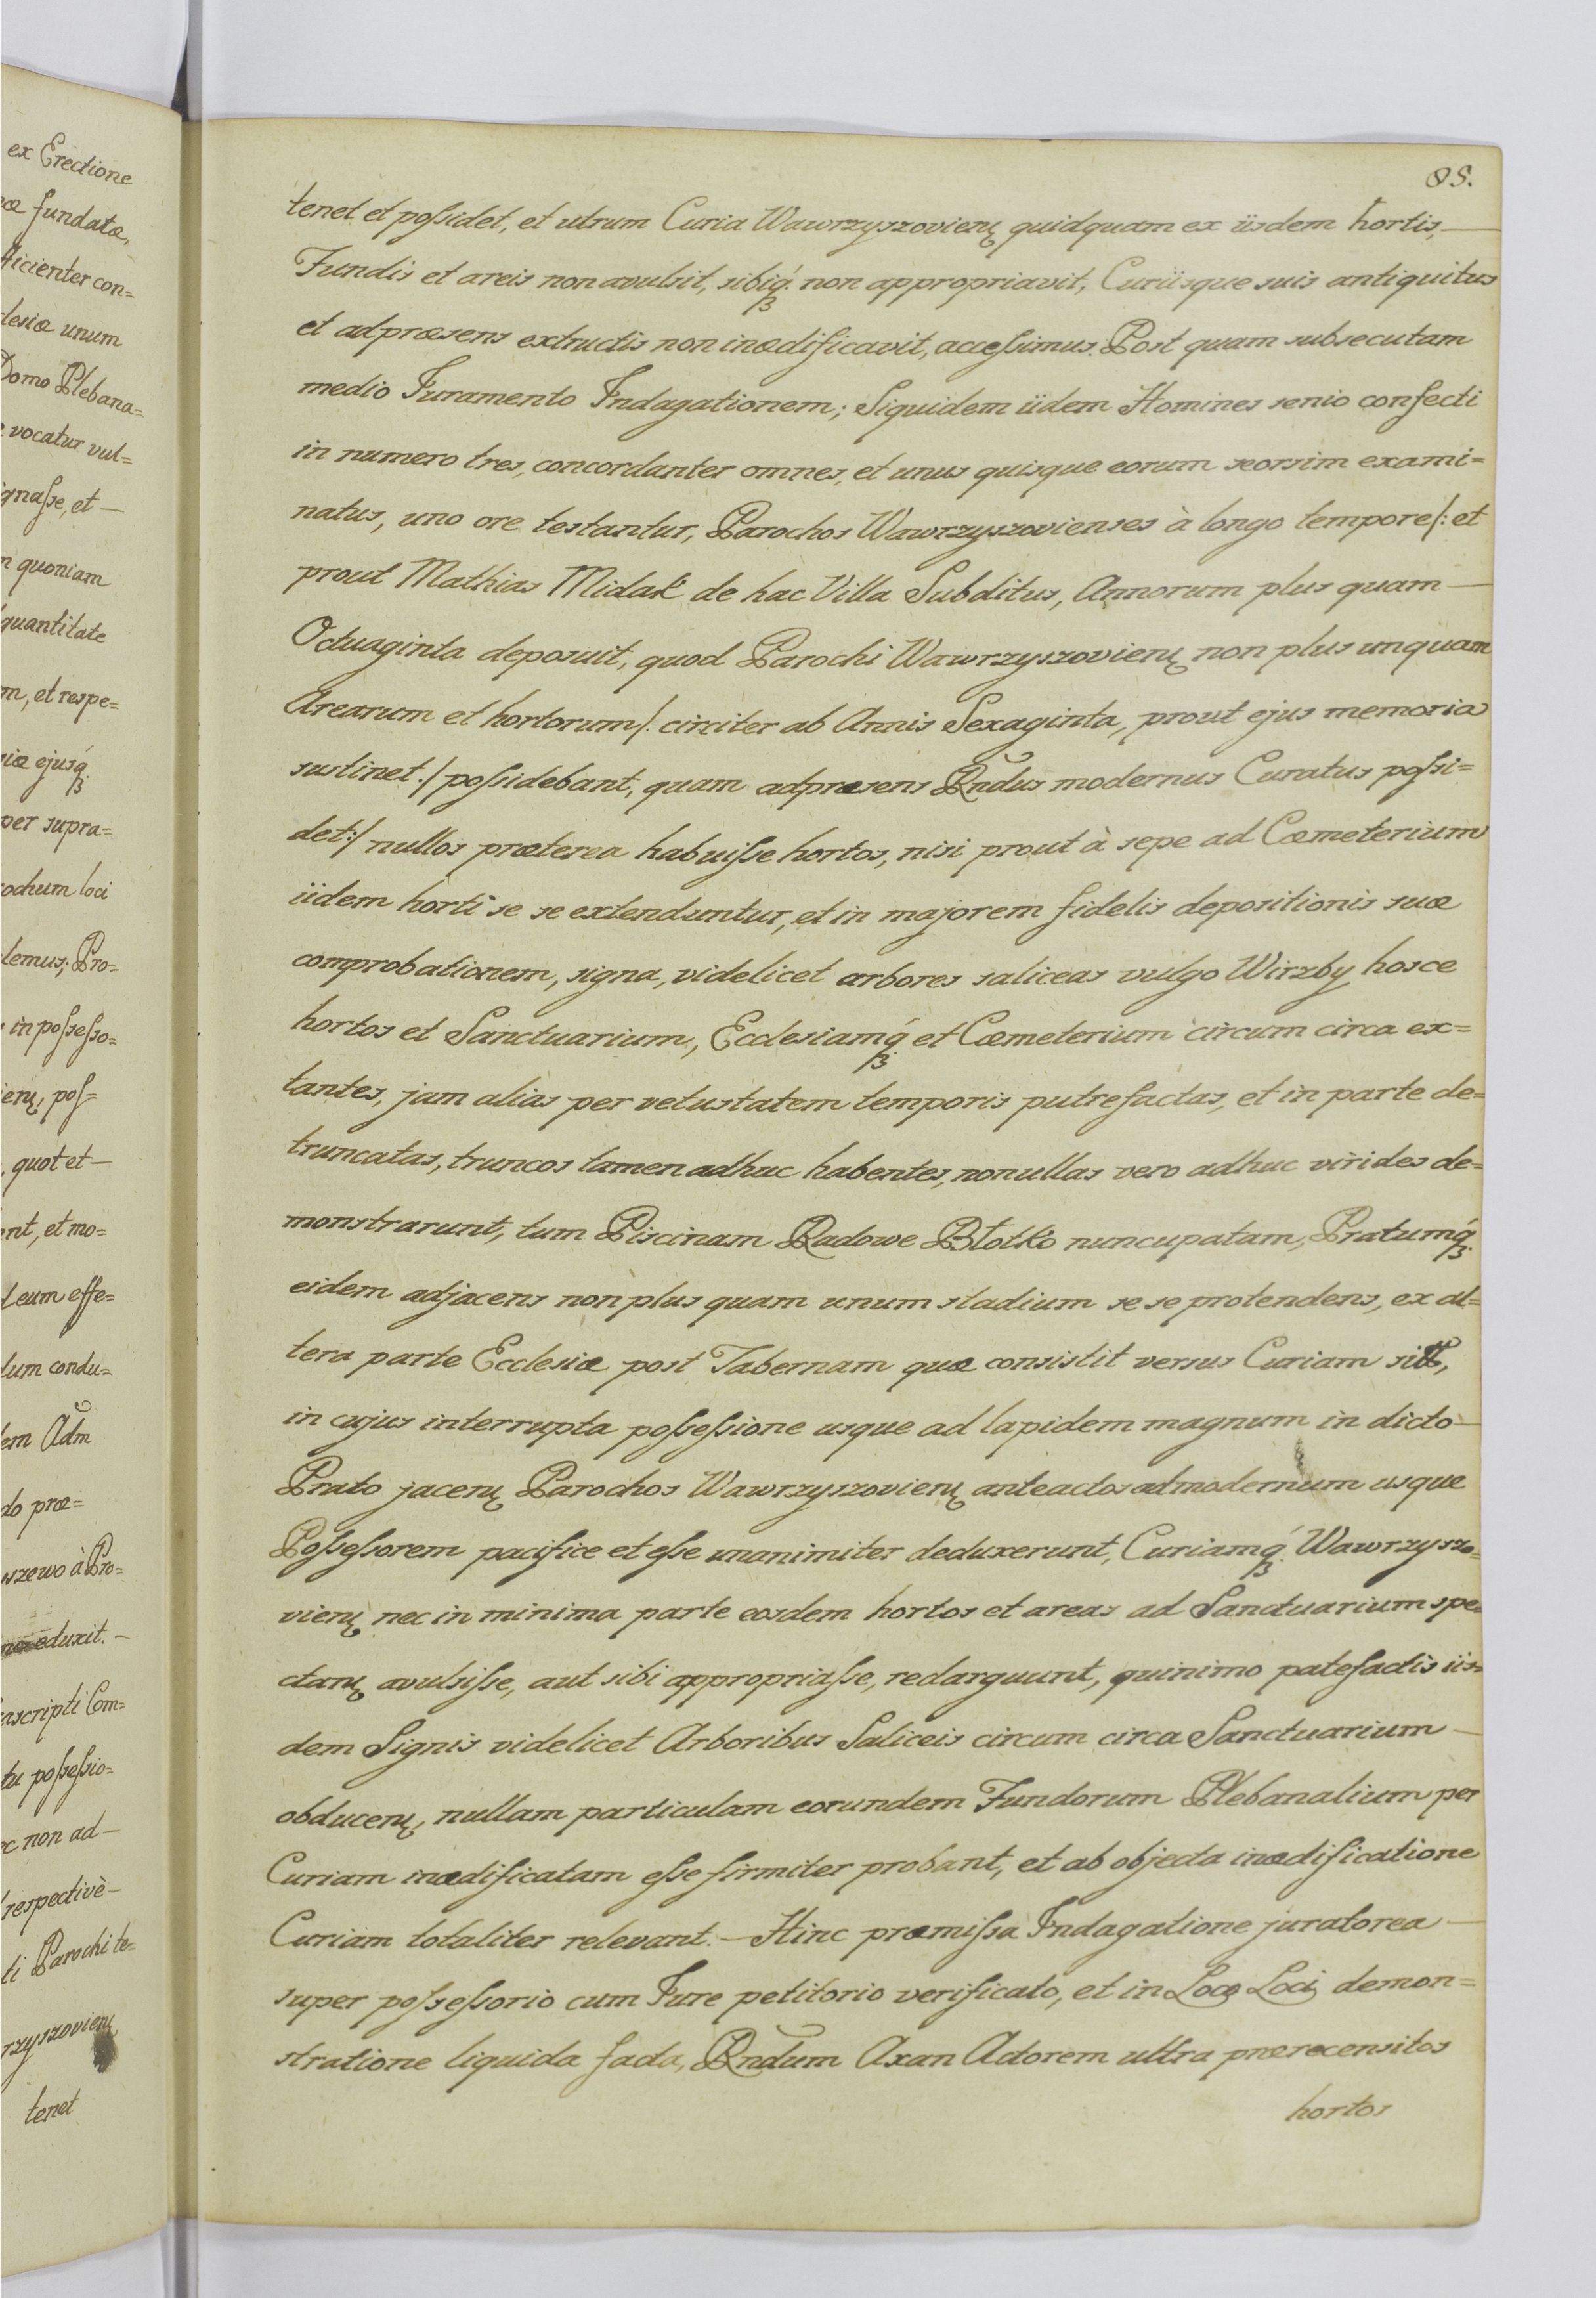 ex Erectione
fundatæ,
ficienter con=
clesiæ unum
Domo Plebana=
vocatur vul=
ignasse, et —
quoniam
quantitate
m, et respe=
ejusq́ꝫ
per supra=
ochum loci
demus; Pro=
in possesso=
ienꝝ, pos=
, quot et —
nt, et mo=
d eum effe=
dum condu=
em Adm̃
do præ=
wszewo à Pro=
eduxit. —
ascripti Com=
tu possessio=
ec non ad —
respectivè —
ti Parochi te=
rzyszovienꝝ
tenet
85.
tenet et possidet, et utrum Curia Wawrzyszovienꝝ quidquam ex iisdem hortis, —
Fundis et areis non avulsit, sibiq́ꝫ non appropriavit, Curiisque suis antiquitus
et ad præsens extructis non inædificavit, accessimus. Post quam subsecutam
medio Juramento Indagationem; Siquidem iidem Homines senio confecti
in numero tres, concordanter omnes, et unus quisque eorum seorsim exami=
natus, uno ore testantur, Parochos Wawrzyszovienses à longo tempore /: et
prout Mathias Midak de hac Villa Subditus, Annorum plus quam —
Octuaginta deposuit, quod Parochi Wawrzyszovienꝝ non plus unquam
Arearum et hortorum /: circiter ab Annis Sexaginta, prout ejus memoria
sustinet :/ possidebant, quam ad præsens Rñdus modernus Curatus possi=
det :/ nullos præterea habuisse hortos, nisi prout à sepe ad Cæmeterium
iidem horti se se extenduntur, et in majorem fidelis depositionis suæ
comprobationem, signa, videlicet arbores saliceas vulgo Wirzby, hosce
hortos et Sanctuarium, Ecclesiamq́ꝫ et Cæmeterium circum circa ex=
tantes, jam alias per vetustatem temporis putrefactas, et in parte de=
truncatas, truncos tamen adhuc habentes, nonullas vero adhuc virides de=
monstrarunt, tum Piscinam Radowe Błotko nuncupatam, Pratumq́ꝫ
eidem adjacens non plus quam unum stadium se se protendens, ex al=
tera parte Ecclesiæ post Tabernam quæ consistit versus Curiam
in cujus interrupta possessione usque ad lapidem magnum in dicto —
Prato jacenꝝ Parochos Wawrzyszovienꝝ anteactos ad modernum usque
Possessorem pacifice et esse unanimiter deduxerunt, Curiamq́ꝫ Wawrzyszo=
vienꝝ nec in minima parte eosdem hortos et areas ad Sanctuarium spe=
ctanꝝ avulsisse, aut sibi appropriasse, redarguunt, quinimo patefactis iis=
dem Signis videlicet Arboribus Saliceis circum circa Sanctuarium —
obducenꝝ, nullam particulam eorundem Fundorum Plebanalium per
Curiam inædificatam esse firmiter probant, et ab objecta inædificatione
Curiam totaliter relevant. — Hinc præmissa Indagatione juratorea —
super possessorio cum Jure petitorio verificato, et in Loco Loci demon=
stratione liquida facta, Rñdum Axan Actorem ultra prærecensitos
hortos